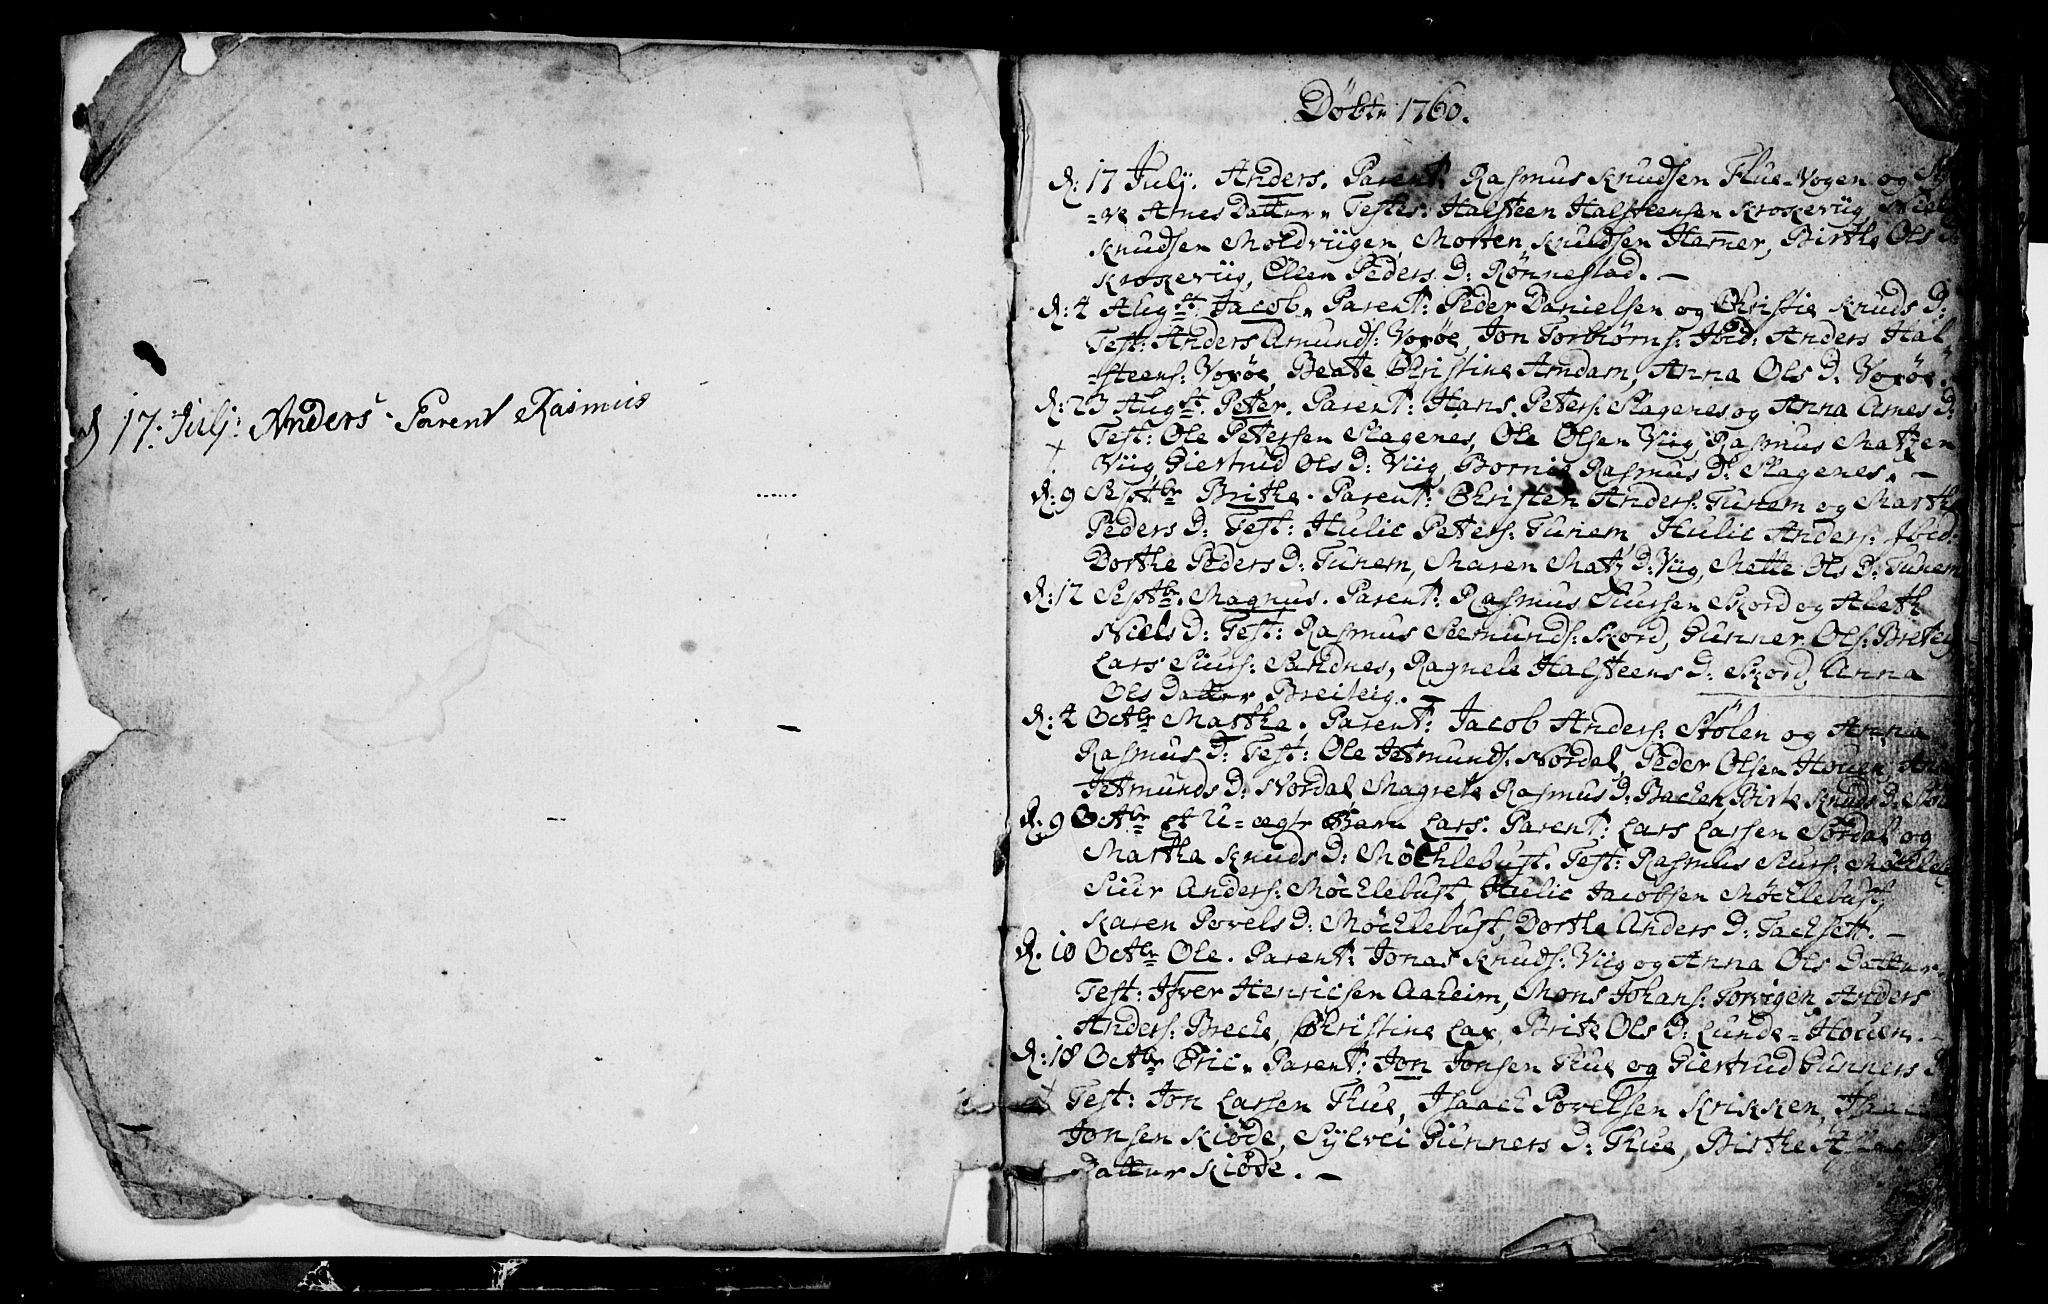 d 17. Julj: Anders. Parent Rasmus
Döbte 1760.
d: 17 Julj. Anders. Parent: Rasmus Knudsen Flue-Vogen og
Arnes Datter. Testes: Halsteen Halsteensen Krokeviig,
Knudsen Moldviigen, Morten Knudsen Hamer, Birthe Ols D:
Krokeviig, Ellen Peders D: Rönnestad. –
d: 4 Augst. Jacob. Parent: Peder Danielsen og Christie Knuds D:
Test: Anders Amunds: Voxöe, Jon Torbiörns: Ibid: Anders Hal-
-steens: Voxöe, Beate Christine Amdam, Anna Ols D: Voxöe.
d: 23 Augst. Peter. Parent: Hans Peters: Slagenes og Anna Arnes D:
Test: Ole Petersen Slagenes, Ole Olsen Viig, Rasmus Matzen
Viig, Giertrud Ols D: Viig, Bornil Rasmus D: Slagenes. –
d: 9 Septbr. Brithe. Parent: Christen Anders: Tunem og Marthe
Peders D: Test: Hulic Peters: Tunem, Hulic Anders: Ibid:
Dorthe Peders D: Tunem, Maren Matz D: Viig, Mette Ols D: Tunem
d: 12 Septbr. Magnus. Parent: Rasmus Siursen Skord og Aleth
Niels D: Test: Rasmus Seemunds: Skord, Gunner Ols: Breteig,
Lars Siurs: Sandnes, Ragnele Halsteens D: Skord, Anna
Ols Datter Breiteig. –
d: 4 Octbr Martha. Parent: Jacob Anders: Stölen og Anna
Rasmus D: Test: Ole Jetmunds: Nordal, Peder Olsen Houen,
Jetmunds D: Nordal, Magrete Rasmus D: Backen, Birte Knuds D:
d: 9 Octbr et U-ægte Barn Lars. Parent: Lars Larsen Sördal og
Martha Knuds D: Möchlebust. Test: Rasmus Siurs: Möchlebust
Siur Anders: Möchlebust, Hulic Jacobsen Möchlebust,
Karen Povels D: Möchlebust, Dorthe Anders D: Tachsett. –
d. 10 Octbr Ole. Parent: Jonas Knuds: Viig og Anna Ols Datter.
Test: Ifver Henricsen Aaheim, Mons Johans: Torvigen, Anders
Anders: Breche, Christine Lax, Brite Ols D: Lunde-Houen. –
d: 18 Octbr Eric. Parent: Jon Jonsen Thue og Giertrud Gunners D
Test: Jon Larsen Thue, Isaach Povelsen Krikken,
Jonsen Kiöde, Sÿlvei Gunners D: Thue, Birthe
Datter Kiöde. –